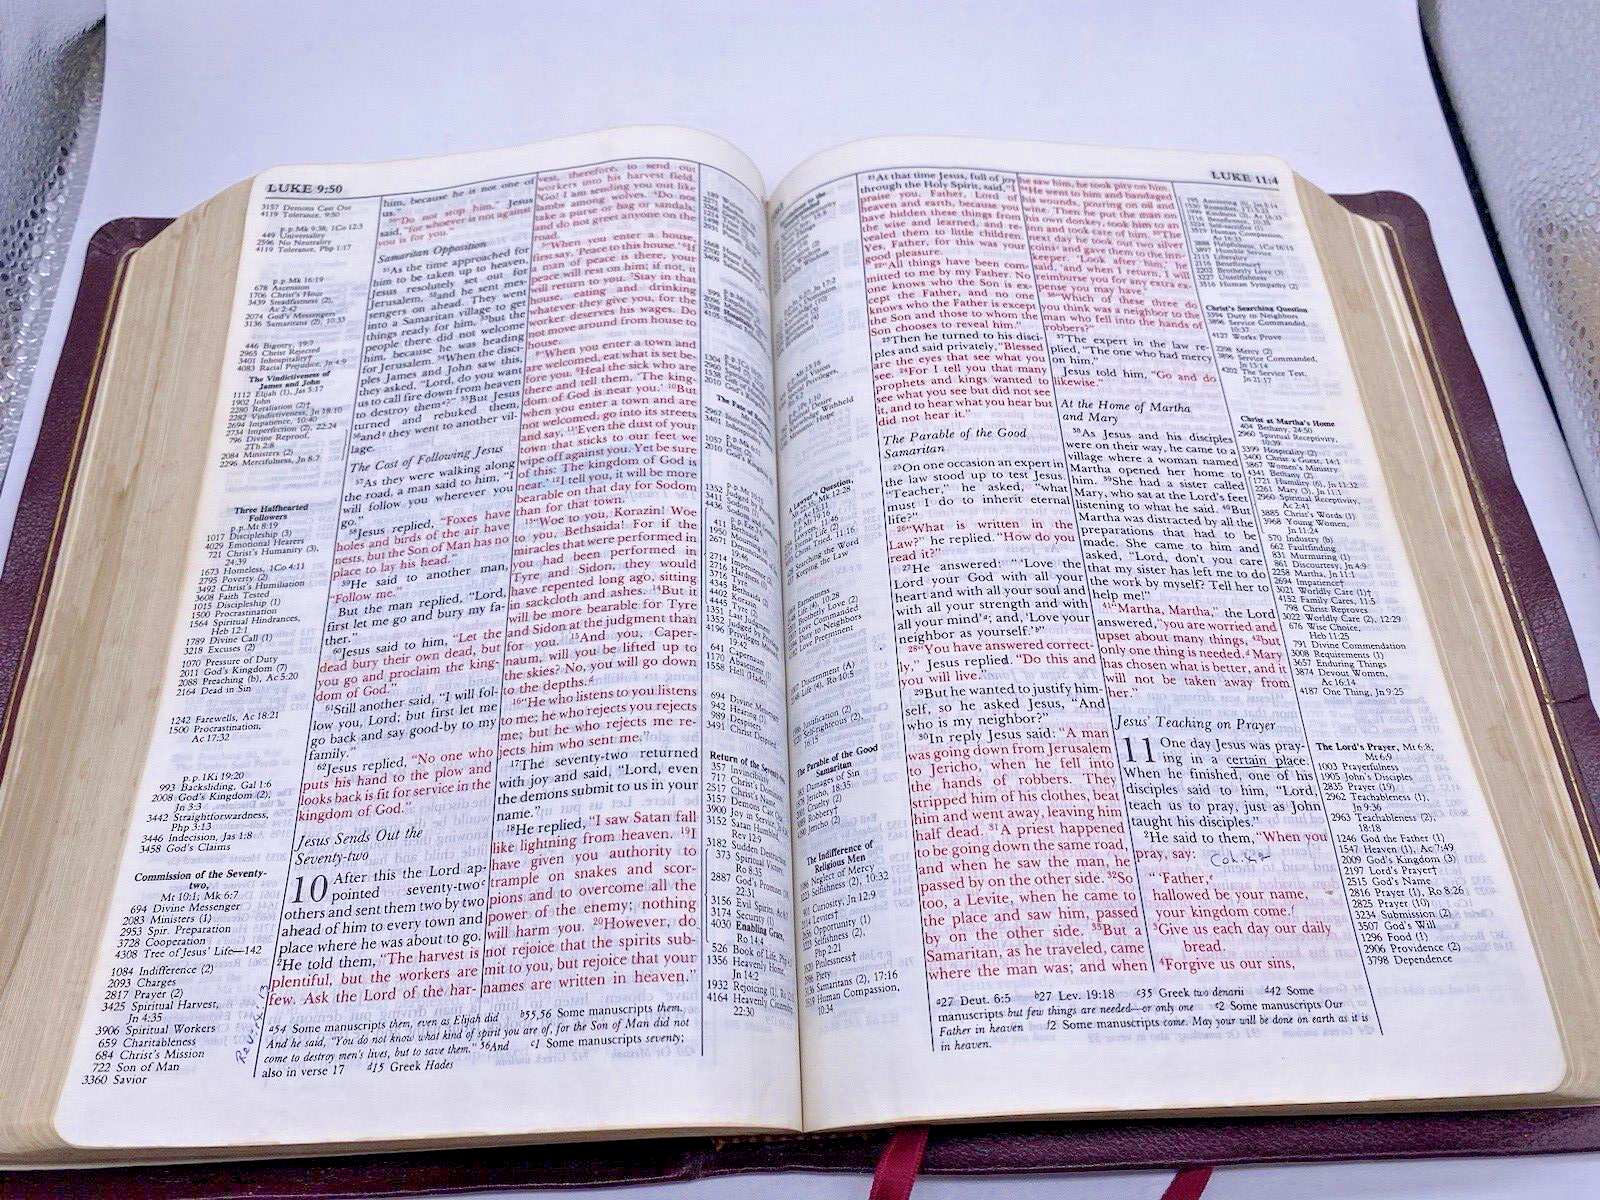 LUKE 9:50
3157 Demons Cast Out
4119 Tolerance, 9:50
p.p. Mk 9:38; 1Co 12:3
449 Universality
2596 No Neutrality
4119 Tolerance, Php 1:17
p.p. Mk 16:19
678 Ascension
1706 Christ's Hour
Ac 2:42
3439 Steadfastness (2),
2074 God's Messengers
3136 Samaritans (2), 10:33
446 Bigotry, 19:7
2965 Christ Rejected
3401 Inhospitality†
4083 Racial Prejudice, Jn 4:9
The Vindictiveness of
James and John
1112 Elijah (1), Jas 5:17
1902 John
2280 Retaliation (2)†
2282 Vindictiveness, Jn 18:10
2694 Impatience, 10:40
2734 Imperfection (2), 22:24
796 Divine Reproof,
2Th 2:8
2084 Ministers (2)
2296 Mercifulness, Jn 8:7
Three Halfhearted
Followers
p.p. Mt 8:19
1017 Discipleship (3)
4029 Emotional Hearers
721 Christ's Humanity (3),
24:39
1673 Homeless, 1Co 4:11
2795 Poverty (2)
3492 Christ's Humiliation
3608 Faith Tested
1015 Discipleship (1)
1500 Procrastination
1564 Spiritual Hindrances,
Heb 12:1
1789 Divine Call (1)
3218 Excuses (2)
1070 Pressure of Duty
2011 God's Kingdom (7)
2088 Preaching (b), Ac 5:20
2164 Dead in Sin
1242 Farewells, Ac 18:21
1500 Procrastination,
Ac 17:32
p.p. 1Ki 19:20
993 Backsliding, Gal 1:6
2008 God's Kingdom (2),
Jn 3:3
3442 Straightforwardness,
Php 3:13
3446 Indecision, Jas 1:8
3458 God's Claims
Commission of the Seventy-
two,
Mt 10:1; Mk 6:7
694 Divine Messenger
2083 Ministers (1)
2953 Spir. Preparation
3728 Cooperation
4308 Tree of Jesus' Life—142
1084 Indifference (2)
2093 Charges
2817 Prayer (2)
3425 Spiritual Harvest,
Jn 4:35
3906 Spiritual Workers
659 Charitableness
684 Christ's Mission
722 Son of Man
3360 Savior
him, because he is not one of
us."
50"Do not stop him," Jesus
said, "for whoever is not against
you is for you."
Samaritan Opposition
51As the time approached for
him to be taken up to heaven,
Jesus resolutely set out for
Jerusalem. 52and he sent mes-
sengers on ahead. They went
into a Samaritan village to get
things ready for him, 53but the
people there did not welcome
him, because he was heading
for Jerusalem. 54When the disci-
ples James and John saw this,
they asked, "Lord, do you want
us to call fire down from heaven
to destroy them a?" 55But Jesus
turned and rebuked them,
56and b they went to another vil-
lage.
The Cost of Following Jesus
57As they were walking along
the road, a man said to him, "I
will follow you wherever you
go."
58Jesus replied, "Foxes have
holes and birds of the air have
nests, but the Son of Man has no
place to lay his head."
59He said to another man,
"Follow me."
But the man replied, "Lord,
first let me go and bury my fa-
ther."
60Jesus said to him, "Let the
dead bury their own dead, but
you go and proclaim the king-
dom of God."
61Still another said, "I will fol-
low you, Lord; but first let me
go back and say good-by to my
family."
62Jesus replied, "No one who
puts his hand to the plow and
looks back is fit for service in the
kingdom of God."
Jesus Sends Out the
Seventy-two
10 After this the Lord ap-
pointed seventy-two c
others and sent them two by two
ahead of him to every town and
place where he was about to go.
2He told them, "The harvest is
plentiful, but the workers are
few. Ask the Lord of the har-
vest, therefore, to send out
workers into his harvest field.
3Go! I am sending you out like
lambs among wolves. 4Do not
take a purse or bag or sandals;
and do not greet anyone on the
road.
5"When you enter a house,
first say, 'Peace to this house.' 6If
a man of peace is there, your
peace will rest on him; if not, it
will return to you. 7Stay in that
house, eating and drinking
whatever they give you, for the
worker deserves his wages. Do
not move around from house to
house.
8"When you enter a town and
are welcomed, eat what is set be-
fore you. 9Heal the sick who are
there and tell them, 'The king-
dom of God is near you.' 10But
when you enter a town and are
not welcomed, go into its streets
and say, 11'Even the dust of your
town that sticks to our feet we
wipe off against you. Yet be sure
of this: The kingdom of God is
near.' 12I tell you, it will be more
bearable on that day for Sodom
than for that town.
13"Woe to you, Korazin! Woe
to you, Bethsaida! For if the
miracles that were performed in
you had been performed in
Tyre and Sidon, they would
have repented long ago, sitting
in sackcloth and ashes. 14But it
will be more bearable for Tyre
and Sidon at the judgment than
for you. 15And you, Caper-
naum, will you be lifted up to
the skies? No, you will go down
to the depths. d
16"He who listens to you listens
to me; he who rejects you rejects
me; but he who rejects me re-
jects him who sent me."
17The seventy-two returned
with joy and said, "Lord, even
the demons submit to us in your
name."
18He replied, "I saw Satan fall
like lightning from heaven. 19I
have given you authority to
trample on snakes and scor-
pions and to overcome all the
power of the enemy; nothing
will harm you. 20However, do
not rejoice that the spirits sub-
mit to you, but rejoice that your
names are written in heaven."
a54 Some manuscripts them, even as Elijah did b55,56 Some manuscripts them.
And he said, "You do not know what kind of spirit you are of, for the Son of Man did not
come to destroy men's lives, but to save them." 56And c1 Some manuscripts seventy;
also in verse 17 d15 Greek Hades
694 Divine Messenger
942 Hearing (1)
989 Despisers
3491 Christ Despised
Return of the Seventy-
357 Invincibility
717 Christ's
2517 Christ's Name
3157 Demons
3900 Joy in Service
3152 Satan
Rev 12:9
3182 Sudden Destruction
373 Spiritual
Ro 8:35
2887 God's
22:31
3156 Evil Spirits
3174 Security (1)
4030 Enabling Grace,
Ro 14:4
526 Book of Life
1356 Heavenly
Jn 14:2
1932 Rejoicing
4164 Heavenly
22:30
LUKE 11:4
21At that time Jesus, full of joy
through the Holy Spirit, said, "I
praise you, Father, Lord of
heaven and earth, because you
have hidden these things from
the wise and learned, and re-
vealed them to little children.
Yes, Father, for this was your
good pleasure.
22"All things have been com-
mitted to me by my Father. No
one knows who the Son is ex-
cept the Father, and no one
knows who the Father is except
the Son and those to whom the
Son chooses to reveal him."
23Then he turned to his disci-
ples and said privately, "Blessed
are the eyes that see what you
see. 24For I tell you that many
prophets and kings wanted to
see what you see but did not see
it, and to hear what you hear but
did not hear it."
The Parable of the Good
Samaritan
25On one occasion an expert in
the law stood up to test Jesus.
"Teacher," he asked, "what
must I do to inherit eternal
life?"
26"What is written in the
Law?" he replied. "How do you
read it?"
27He answered: "'Love the
Lord your God with all your
heart and with all your soul and
with all your strength and with
all your mind' a; and, 'Love your
neighbor as yourself.' b"
28"You have answered correct-
ly," Jesus replied. "Do this and
you will live."
29But he wanted to justify him-
self, so he asked Jesus, "And
who is my neighbor?"
30In reply Jesus said: "A man
was going down from Jerusalem
to Jericho, when he fell into
the hands of robbers. They
stripped him of his clothes, beat
him and went away, leaving him
half dead. 31A priest happened
to be going down the same road,
and when he saw the man, he
passed by on the other side. 32So
too, a Levite, when he came to
the place and saw him, passed
by on the other side. 33But a
Samaritan, as he traveled, came
where the man was; and when
he saw him, he took pity on him.
34He went to him and bandaged
his wounds, pouring on oil and
wine. Then he put the man on
his own donkey, took him to an
inn and took care of him. 35The
next day he took out two silver
coins c and gave them to the inn-
keeper. 'Look after him,' he
said, 'and when I return, I will
reimburse you for any extra ex-
pense you may have.'
36"Which of these three do
you think was a neighbor to the
man who fell into the hands of
robbers?"
37The expert in the law re-
plied, "The one who had mercy
on him."
Jesus told him, "Go and do
likewise."
At the Home of Martha
and Mary
38As Jesus and his disciples
were on their way, he came to a
village where a woman named
Martha opened her home to
him. 39She had a sister called
Mary, who sat at the Lord's feet
listening to what he said. 40But
Martha was distracted by all the
preparations that had to be
made. She came to him and
asked, "Lord, don't you care
that my sister has left me to do
the work by myself? Tell her to
help me!"
41"Martha, Martha," the Lord
answered, "you are worried and
upset about many things, 42but
only one thing is needed. d Mary
has chosen what is better, and it
will not be taken away from
her."
Jesus' Teaching on Prayer
11 One day Jesus was pray-
ing in a certain place.
When he finished, one of his
disciples said to him, "Lord,
teach us to pray, just as John
taught his disciples."
2He said to them, "When you
pray, say:
"'Father, e
hallowed be your name,
your kingdom come. f
3Give us each day our daily
bread.
4Forgive us our sins,
a27 Deut. 6:5 b27 Lev. 19:18 c35 Greek two denarii d42 Some
manuscripts but few things are needed—or only one e2 Some manuscripts Our
Father in heaven f2 Some manuscripts come. May your will be done on earth as it is
in heaven.
The Parable of the Good
Samaritan
The Indifference of
Religious Men
Christ's Searching Question
3394 Duty to Neighbors
3896 Service Commanded,
10:37
4127 Works Prove
2298 Mercy (2)
3896 Service Commanded,
Jn 13:14
4202 The Service Test,
Jn 21:17
Christ at Martha's Home
404 Bethany, 24:50
2960 Spiritual Receptivity,
10:39
3399 Hospitality (2)
3400 Christ a Guest, 14:1
3867 Women's Ministry
4341 Bethany (2)
1721 Humility (6), Jn 11:32
2261 Mary (3), Jn 11:1
2960 Spiritual Receptivity,
Ac 2:41
3885 Christ's Words (1)
3968 Young Women,
Jn 11:24
570 Industry (b)
662 Faultfinding
831 Murmuring (1)
861 Discourtesy, Jn 4:9
2258 Martha, Jn 11:1
2694 Impatience†
3021 Worldly Care (1)†
4152 Family Cares, 11:5
798 Christ Reproves
3022 Worldly Care (2), 12:29
676 Wise Choice,
Heb 11:25
791 Divine Commendation
3008 Requirements (1)
3657 Enduring Things
3874 Devout Women,
Ac 16:14
4187 One Thing, Jn 9:25
The Lord's Prayer, Mt 6:8;
Mt 6:9
1003 Prayerfulness
1905 John's Disciples
2835 Prayer (19)
2962 Teachableness (1),
Jn 9:36
2963 Teachableness (2),
18:18
1246 God the Father (1)
1547 Heaven (1), Ac 7:49
2009 God's Kingdom (3)
2197 Lord's Prayer†
2515 God's Name
2816 Prayer (1), Ro 8:26
2825 Prayer (10)
3234 Submission (2)
3507 God's Will
1296 Food (1)
2906 Providence (2)
3798 Dependence